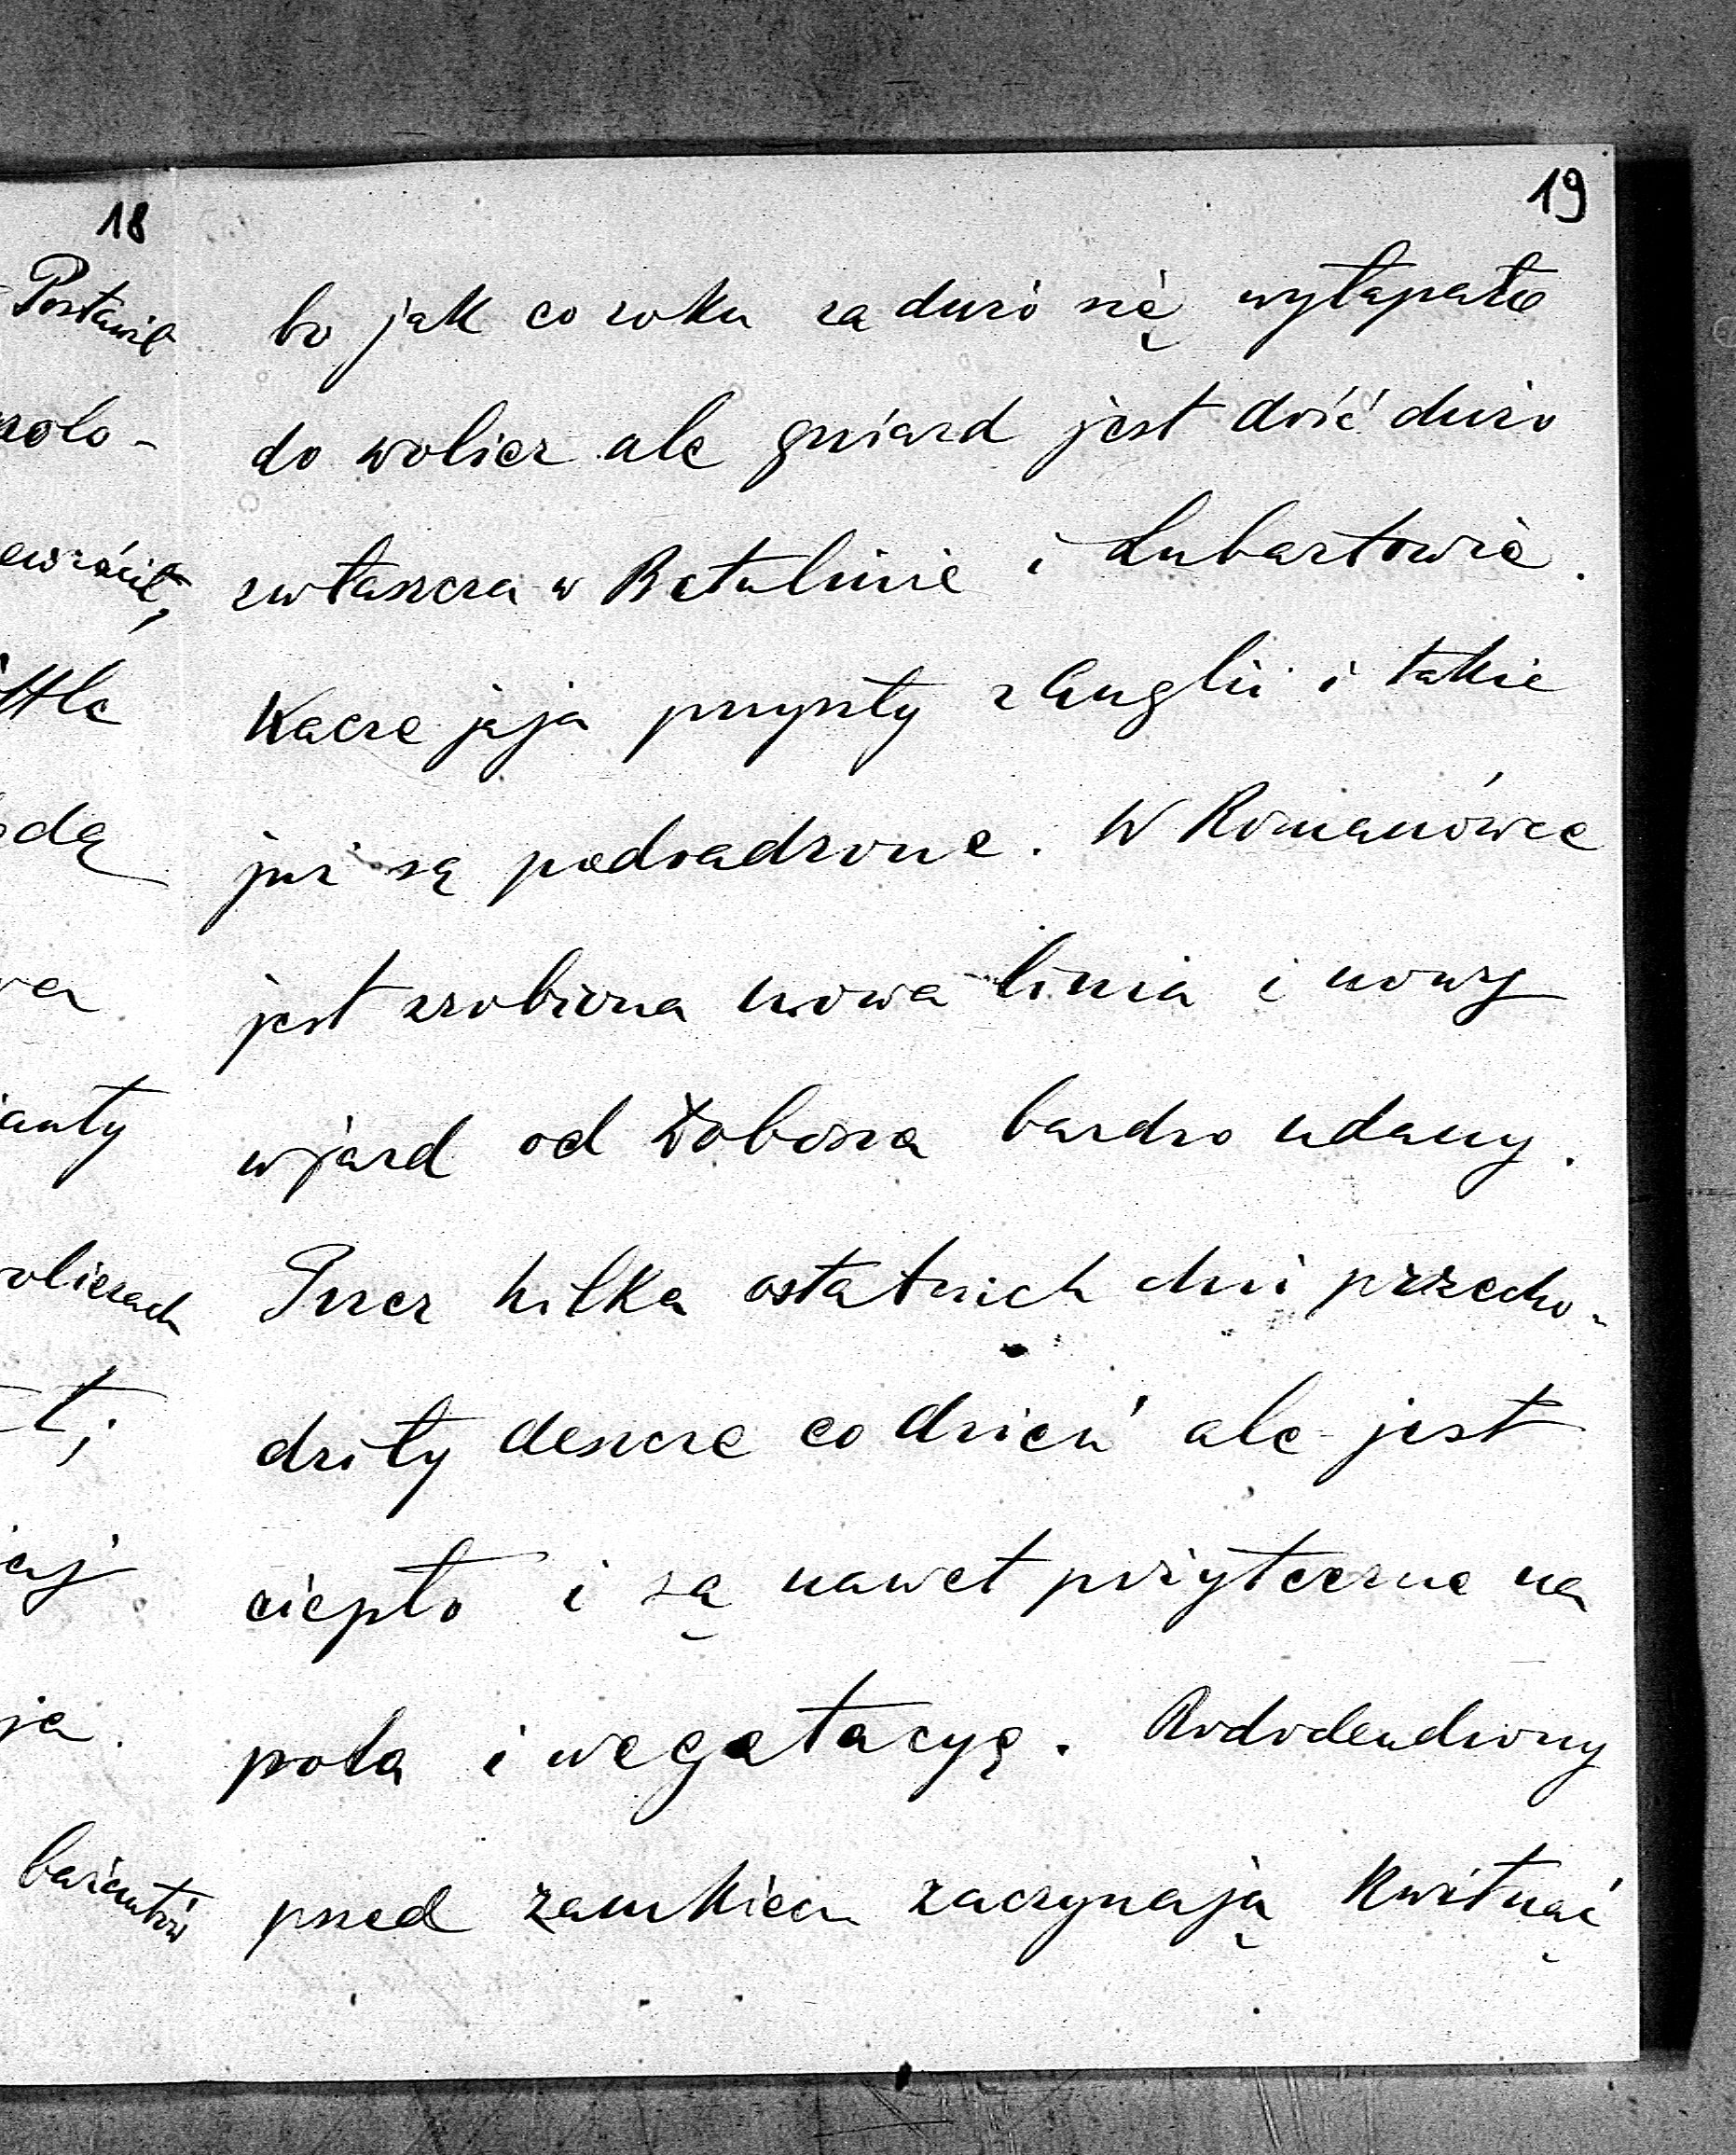 18
Postawił
wrócił,
będą
wolierach
bażantów
19
bo jak co roku za dużo się wyłapało
do wolier ale gniazd jest dość dużo
zwłaszcza w Betulinie i Lubartowie.
Kacze jaja przyszły z Anglii i także
już są podsadzone. W Romanówce
jest zrobiona nowa linia i nowy
wjazd od Dobosza bardzo udany.
Przez kilka ostatnich dni przecho-
dziły deszcze codzień ale jest
ciepło i są nawet pożyteczne na
pola i wegetacyę. Rododendrony
przed zamkiem zaczynają kwitnąć